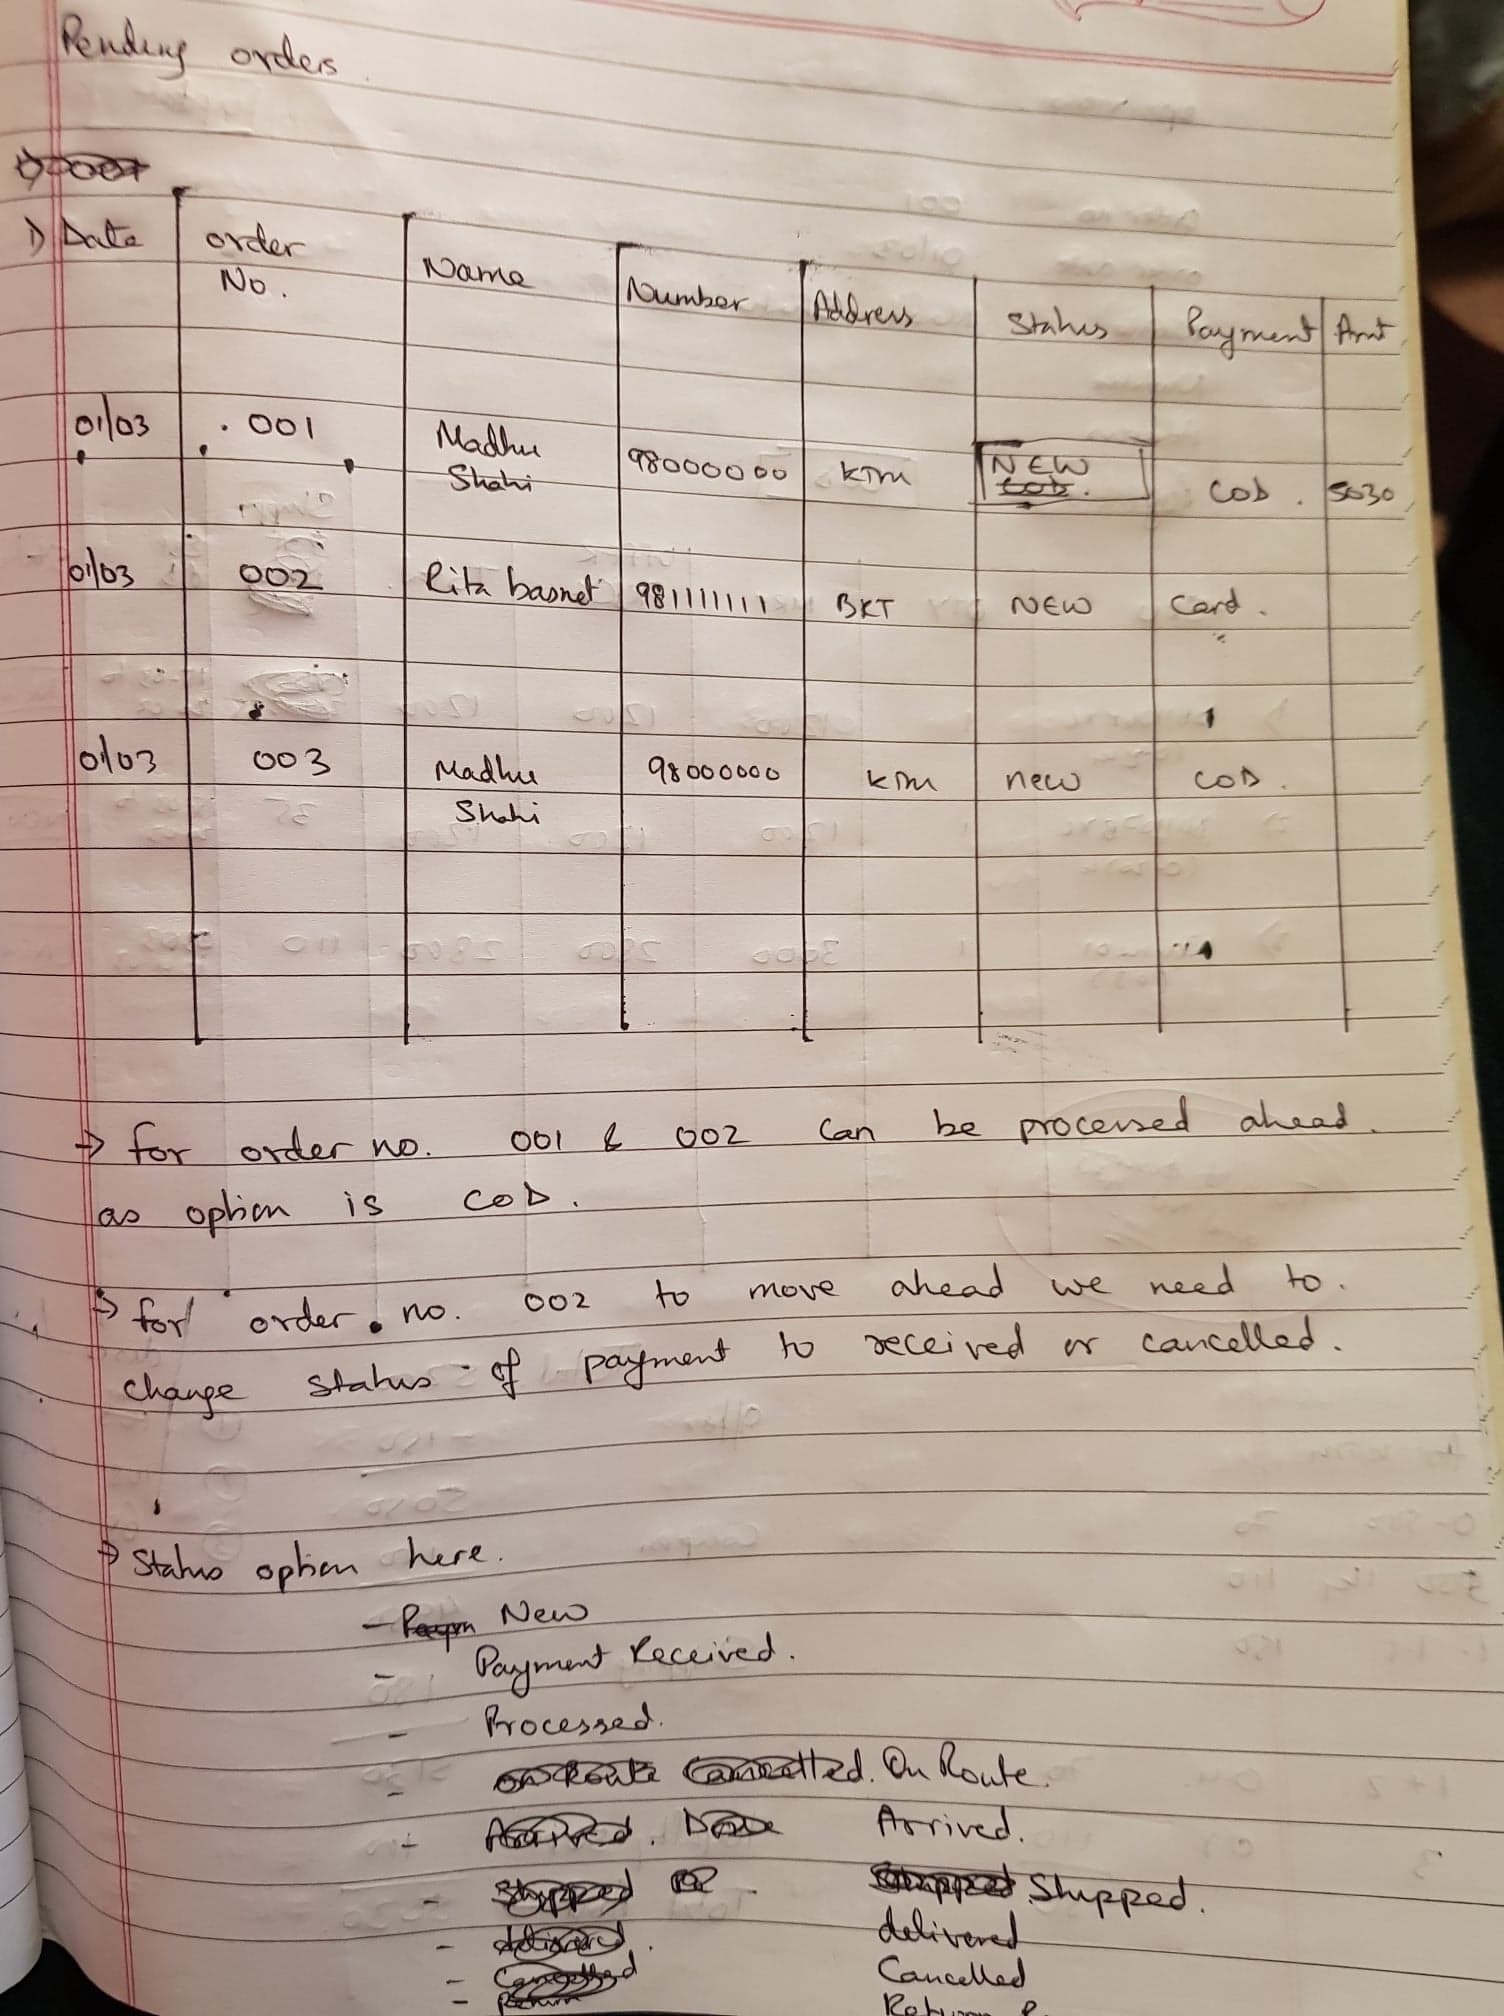 Pending orders
1) Date order No. Name Number Address Status Payment Amt
01/03 001 Madhu Shahi 98000000 KTM NEW COD 5030
01/03 002 Rita basnet 981111111 BKT NEW Card.
01/03 003 Madhu Shahi 98000000 KTM new COD.
→ for order no. 001 & 002 can be processed ahead.
as option is COD.
→ for order no. 002 to move ahead we need to.
change status of payment to received or cancelled.
→ Status option here.
- New
- Payment Received.
- Processed.
- On Route.
- Arrived.
- Shipped.
- delivered
- Cancelled